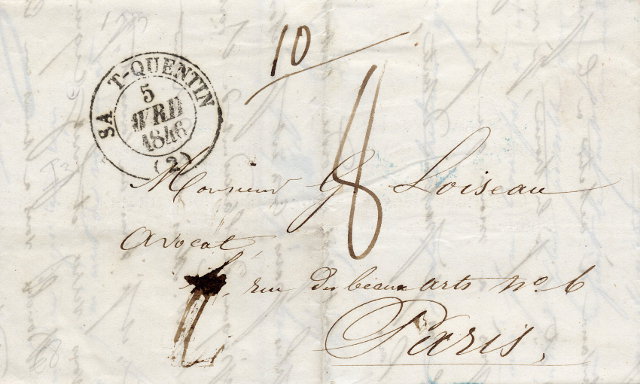 10
SA T-QUENTIN
5
AVRIL
1846
(2)
Monsieur G Loiseau
Avocat
rue des beaux arts no 6
Paris.